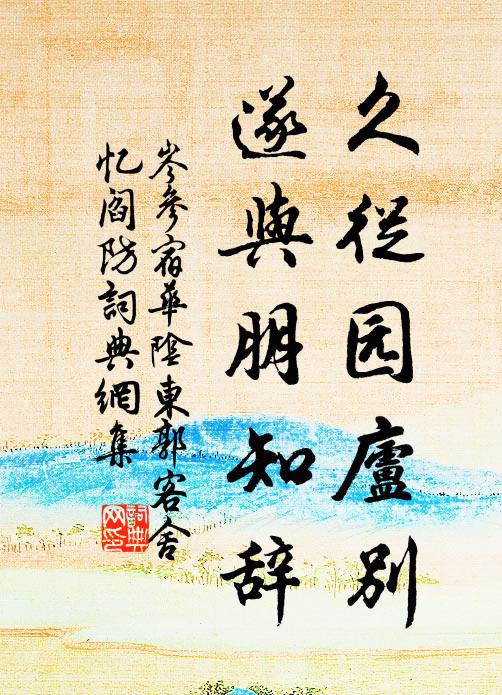 久從园廬别
遂與朋知辞
岑參宿華陰東郭客舍
忆閻防詞典網集